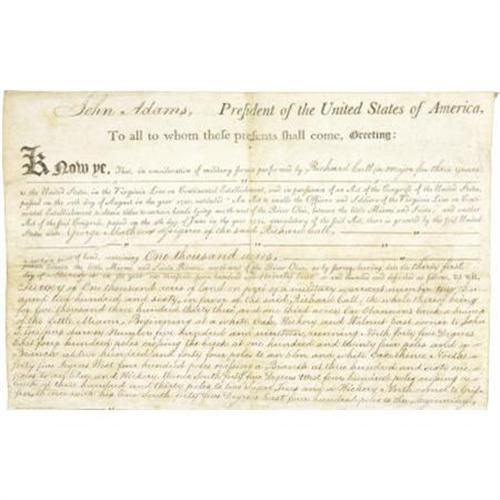 John Adams, President of the United States of America,
To all to whom these presents shall come, Greeting:
Know ye, That, in consideration of military service performed by Richard Call (a major for three years
to the United States, in the Virginia Line on Continental Establishment, and in pursuance of an Act of the Congress of the United States,
passed on the 10th day of August in the year 1790, entitled "An Act to enable the Officers and Soldiers of the Virginia Line on Continental
Establishment to obtain titles to certain lands lying north west of the River Ohio, between the little Miami and Sciota," and another
Act of the said Congress, passed on the 9th day of June in the year 1794, amendatory of the said Act, there is granted by the said United
States unto George Mathews assignee of the said Richard Call,
a certain tract of land, containing One thousand acres,
between the little Miami and Sciota Rivers, north west of the River Ohio, as by survey, bearing date the thirty first
day of in the year one thousand seven hundred and ninety
Survey of One thousand acres of land on part of a military warrant number two thous-
and two hundred and sixty, in favor of the said, Richard Call, the whole thereof being
for five thousand three hundred thirty three and one third acres On Obannons branch a branch
of the little Miami, Beginning at a white Oak, Hickory and Walnut, East corner to John
five hundred and ninety, running North forty five Degrees
East four hundred poles crossing the Creek at one hundred and twenty five poles and a
Branch at two hundred and sixty four poles to an Elm and white Oak, thence North
forty five Degrees West four hundred poles crossing a Branch at three hundred and sixty one
poles to and Hickory, thence South forty five Degrees West four hundred poles crossing a
Creek at three hundred and thirty poles to two Sugar Trees and a Hickory North corner to
line South forty five Degrees East four hundred poles to the Beginning,